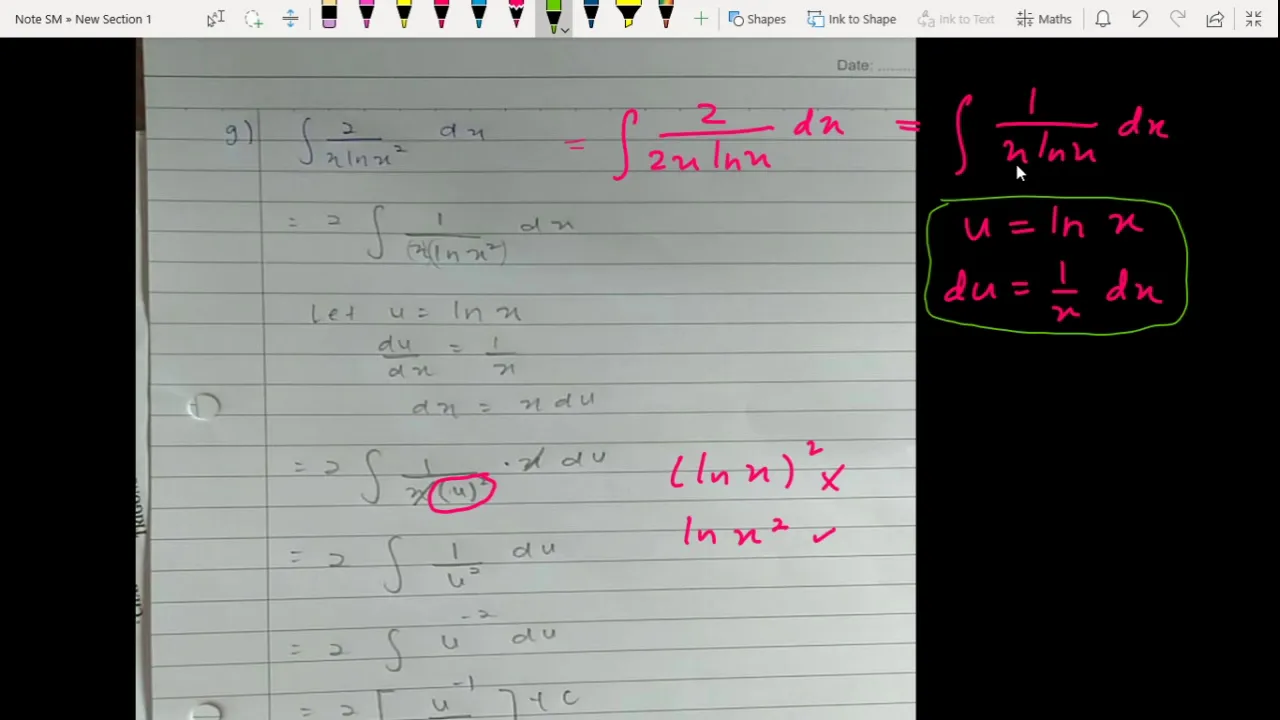 Note SM » New Section 1
Shapes Ink to Shape Ink to Text Maths
Date: ........
g) ∫ 2/(x ln x²) dx = ∫ 2/(2x ln x) dx = ∫ 1/(x ln x) dx
= 2 ∫ 1/((x)(ln x²)) dx
u = ln x
du = 1/x dx
Let u = ln x
du/dx = 1/x
dx = x du
= 2 ∫ 1/(x(u)²) · x du
(ln x)² ×
ln x² ✓
= 2 ∫ 1/u² du
= 2 ∫ u⁻² du
= 2 [ u⁻¹ ] + C